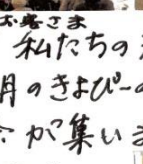 お客さま
私たちの
月のきよぴーの
が集いま